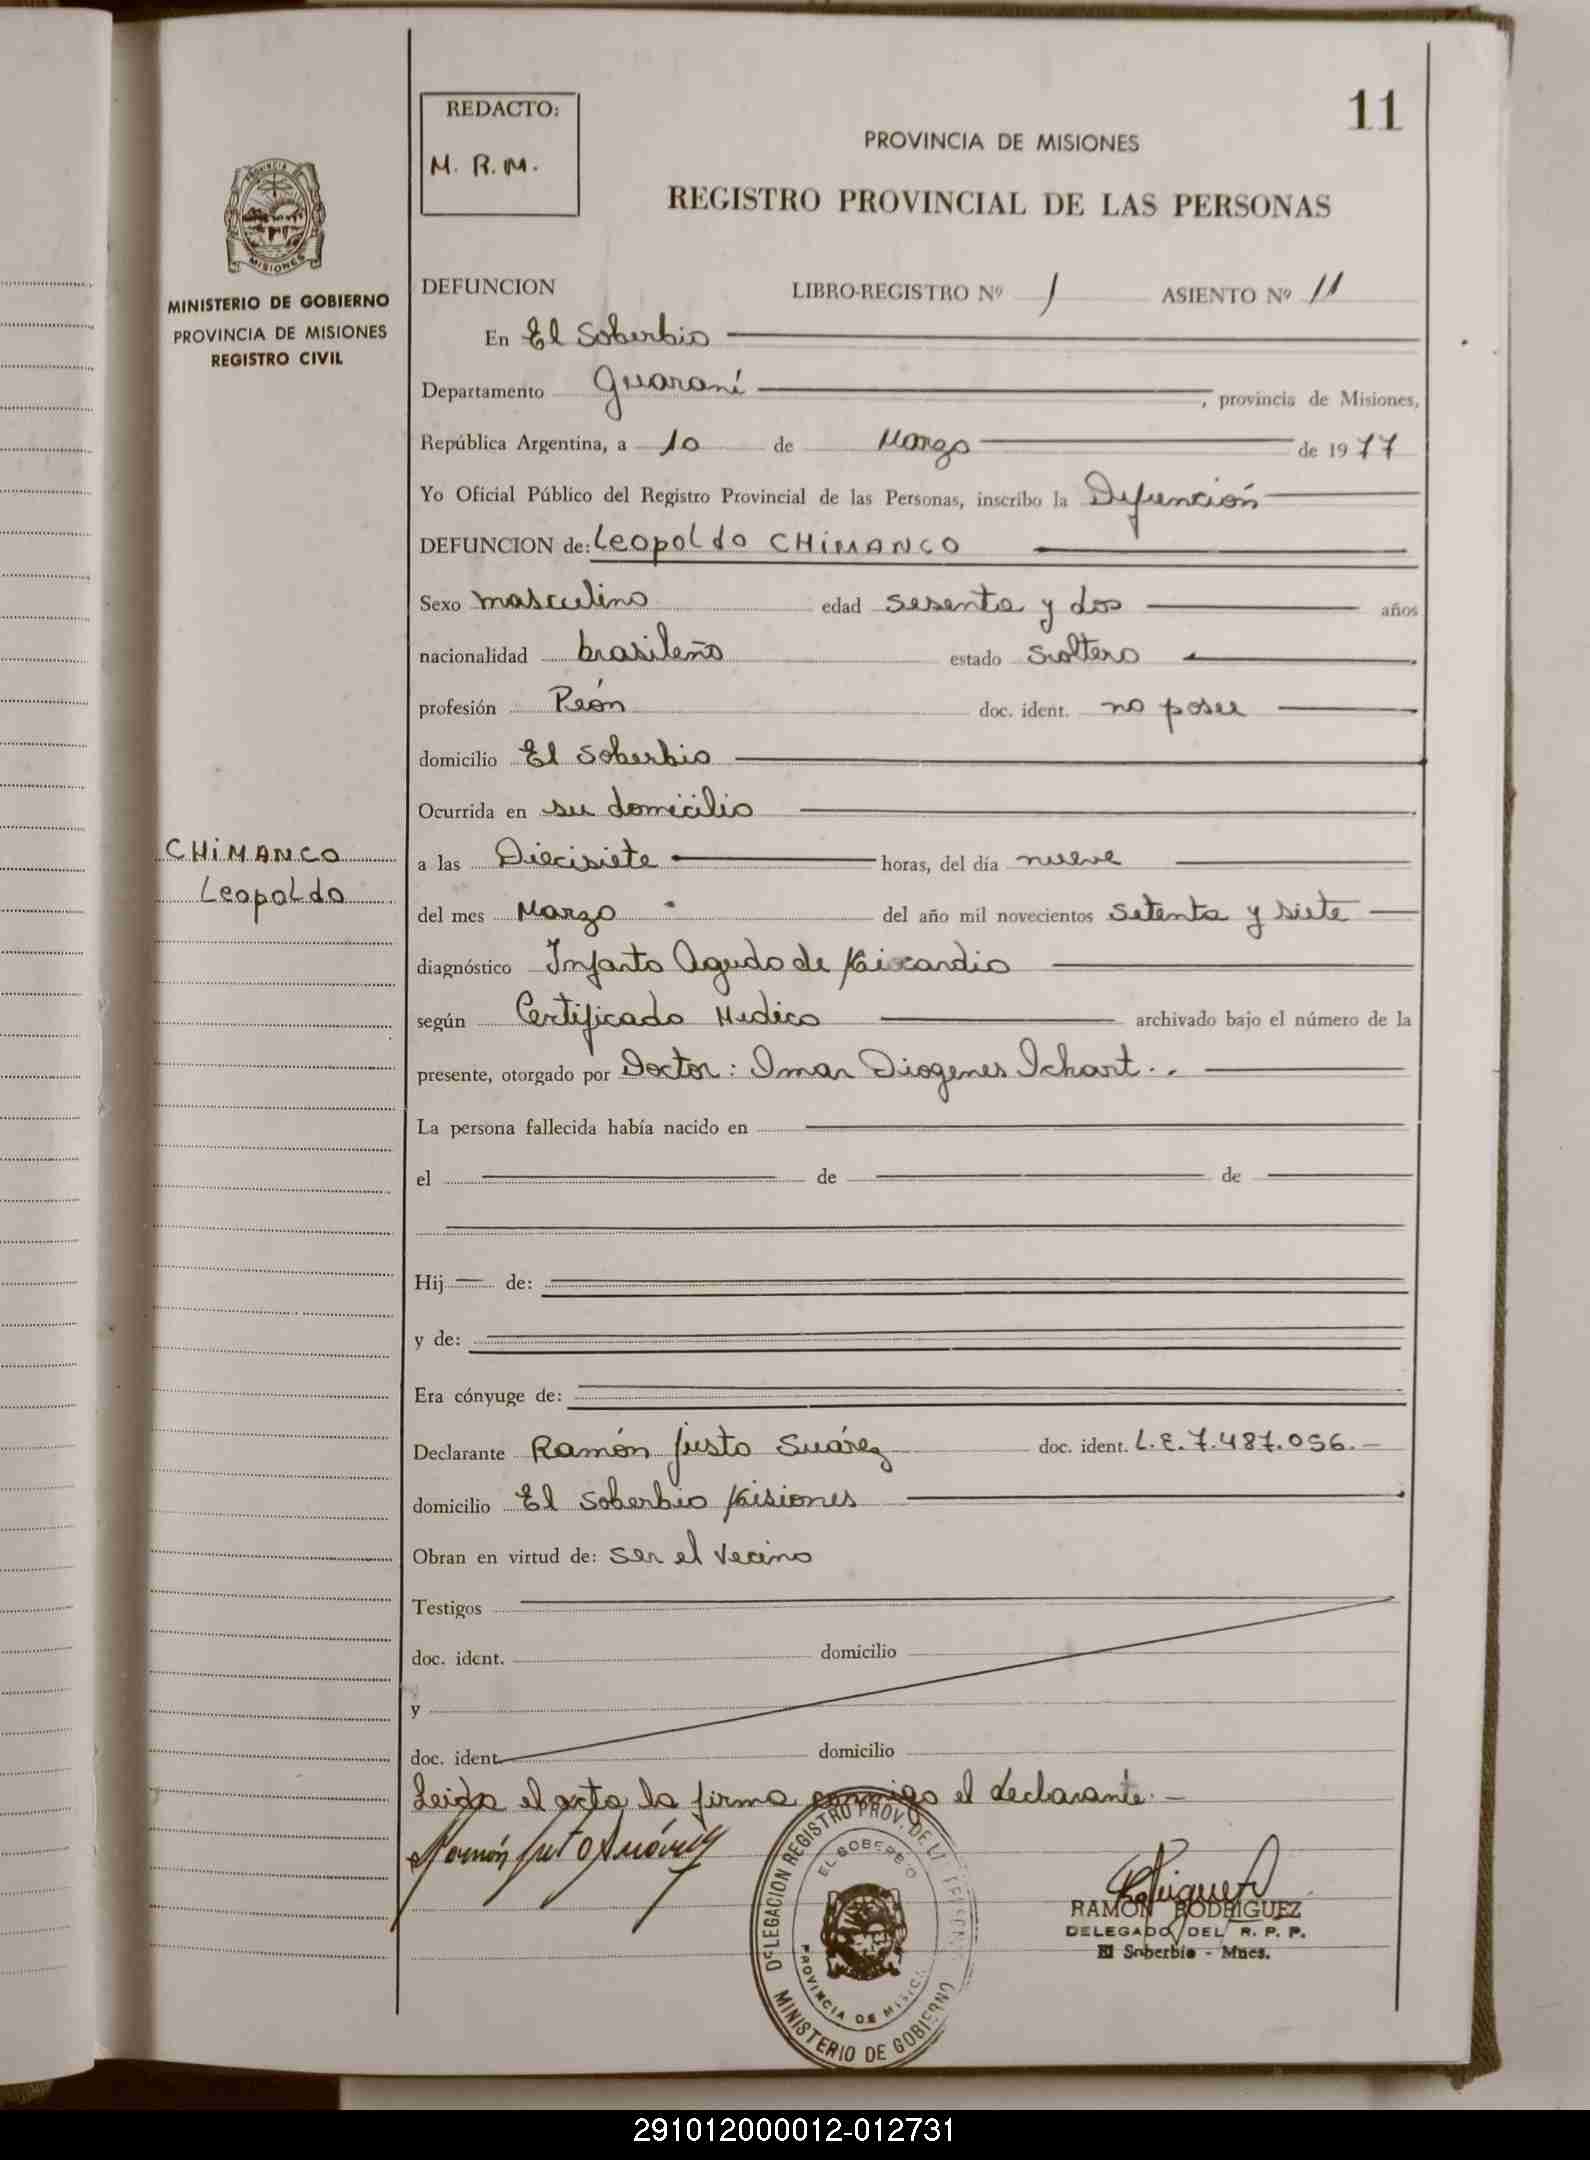 11
REDACTO:
M. R. M.
PROVINCIA DE MISIONES
REGISTRO PROVINCIAL DE LAS PERSONAS
PROVINCIA DE
MISIONES
MINISTERIO DE GOBIERNO
PROVINCIA DE MISIONES
REGISTRO CIVIL
DEFUNCION LIBRO-REGISTRO Nº 1 ASIENTO Nº 11
En El Soberbio
Departamento Guaraní, provincia de Misiones,
República Argentina, a 10 de Marzo de 1977
Yo Oficial Público del Registro Provincial de las Personas, inscribo la Defunción
DEFUNCION de: Leopoldo CHIMANCO
Sexo masculino edad sesenta y dos años
nacionalidad brasileño estado Soltero
profesión Peón doc. ident. no posee
domicilio El Soberbio
Ocurrida en su domicilio
CHIMANCO
Leopoldo
a las Diecisiete horas, del día nueve
del mes Marzo del año mil novecientos setenta y siete
diagnóstico Infarto Agudo de Miocardio
según Certificado Medico archivado bajo el número de la
presente, otorgado por Doctor: Omar Diogenes Ichart..
La persona fallecida había nacido en
el de de
Hij de:
y de:
Era cónyuge de:
Declarante Ramón Justo Suárez doc. ident. L.E. 7.487.056.-
domicilio El Soberbio Misiones
Obran en virtud de: ser el vecino
Testigos
doc. ident. domicilio
y
doc. ident. domicilio
Leida el acta la firma conmigo el declarante.-
Ramón Justo Suárez
DELEGACION REGISTRO PROV. DE LAS PERSONAS
EL SOBERBIO
PROVINCIA DE MISIONES
MINISTERIO DE GOBIERNO
RAMON RODRIGUEZ
DELEGADO DEL R. P. P.
El Soberbio - Mnes.
291012000012-012731